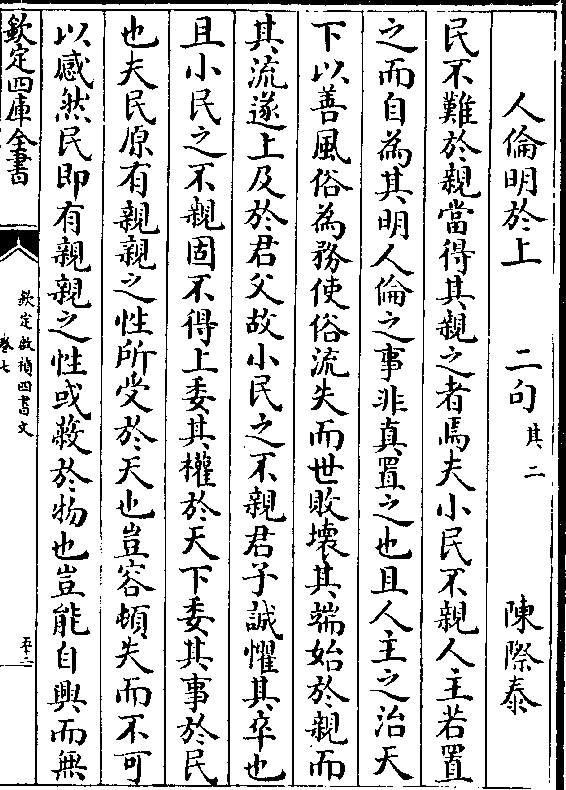 人倫明於上　二句其二　陳際泰
民不難於親當得其親之者焉夫小民不親人主若置
之而自為其明人倫之事非真置之也且人主之治天
下以善風俗為務使俗流失而世敗壞其端始於親而
其流遂上及於君父故小民之不親君子誠懼其卒也
且小民之不親固不得上委其權於天下委其事於民
也夫民原有親親之性所受於天也豈容頓失而不可
以感然民即有親親之性或蔽於物也豈能自興而無
欽定四庫全書
欽定啟禎四書文
卷七